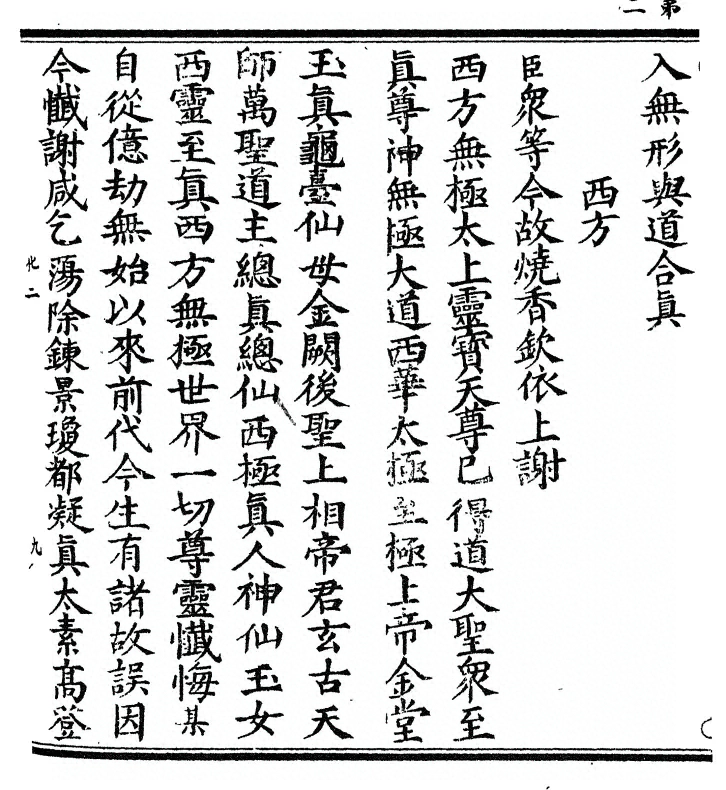 第
二
入無形與道合眞
西方
臣衆等今故燒香欽依上謝
西方無極太上靈寶天尊已得道大聖衆至
眞尊神無極大道西華太極皇極上帝金堂
玉眞龜臺仙母金闕後聖上相帝君玄古天
師萬聖道主總眞總仙西極眞人神仙玉女
西靈至眞西方無極世界一切尊靈懺悔某
自從億劫無始以來前代今生有諸故誤因
今懺謝咸乞蕩除鍊景瓊都凝眞太素髙登
化二
九